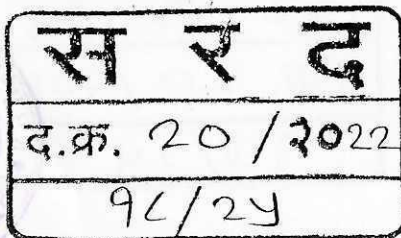 स र द
द.क्र. 20 / २022
१८/२५